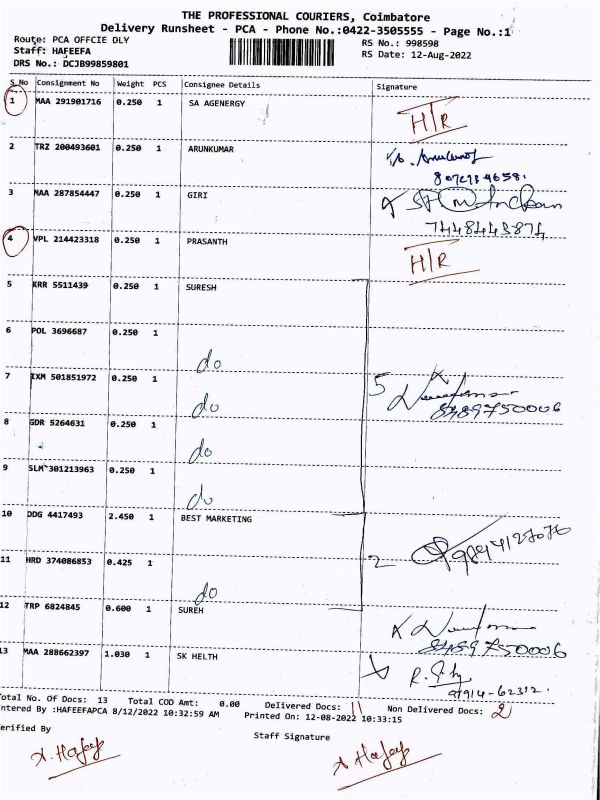 THE PROFESSIONAL COURIERS, Coimbatore
Delivery Runsheet - PCA - Phone No.:0422-3505555 - Page No.:1
Route: PCA OFFCIE DLY
RS No.: 998598
Staff: HAFEEFA
RS Date: 12-Aug-2022
DRS No.: DCJB99859801
S No Consignment No Weight PCS Consignee Details Signature
1 MAA 291901716 0.250 1 SA AGENERGY H/R
2 TRZ 200493601 0.250 1 ARUNKUMAR
3 MAA 287854447 0.250 1 GIRI
7448443874
4 VPL 214423318 0.250 1 PRASANTH H/R
5 KRR 5511439 0.250 1 SURESH
6 POL 3696687 0.250 1 do
7 IXM 501851972 0.250 1 do 5
8489750006
8 GDR 5264631 0.250 1 do
9 SLM 301213963 0.250 1 do
10 DDG 4417493 2.450 1 BEST MARKETING
11 HRD 374086853 0.425 1 do 2
12 TRP 6824845 0.600 1 SUREH
8489750006
13 MAA 288662397 1.030 1 SK HELTH
97914-62312.
Total No. Of Docs: 13 Total COD Amt: 0.00 Delivered Docs: 11 Non Delivered Docs: 2
Entered By :HAFEEFAPCA 8/12/2022 10:32:59 AM Printed On: 12-08-2022 10:33:15
Verified By Staff Signature